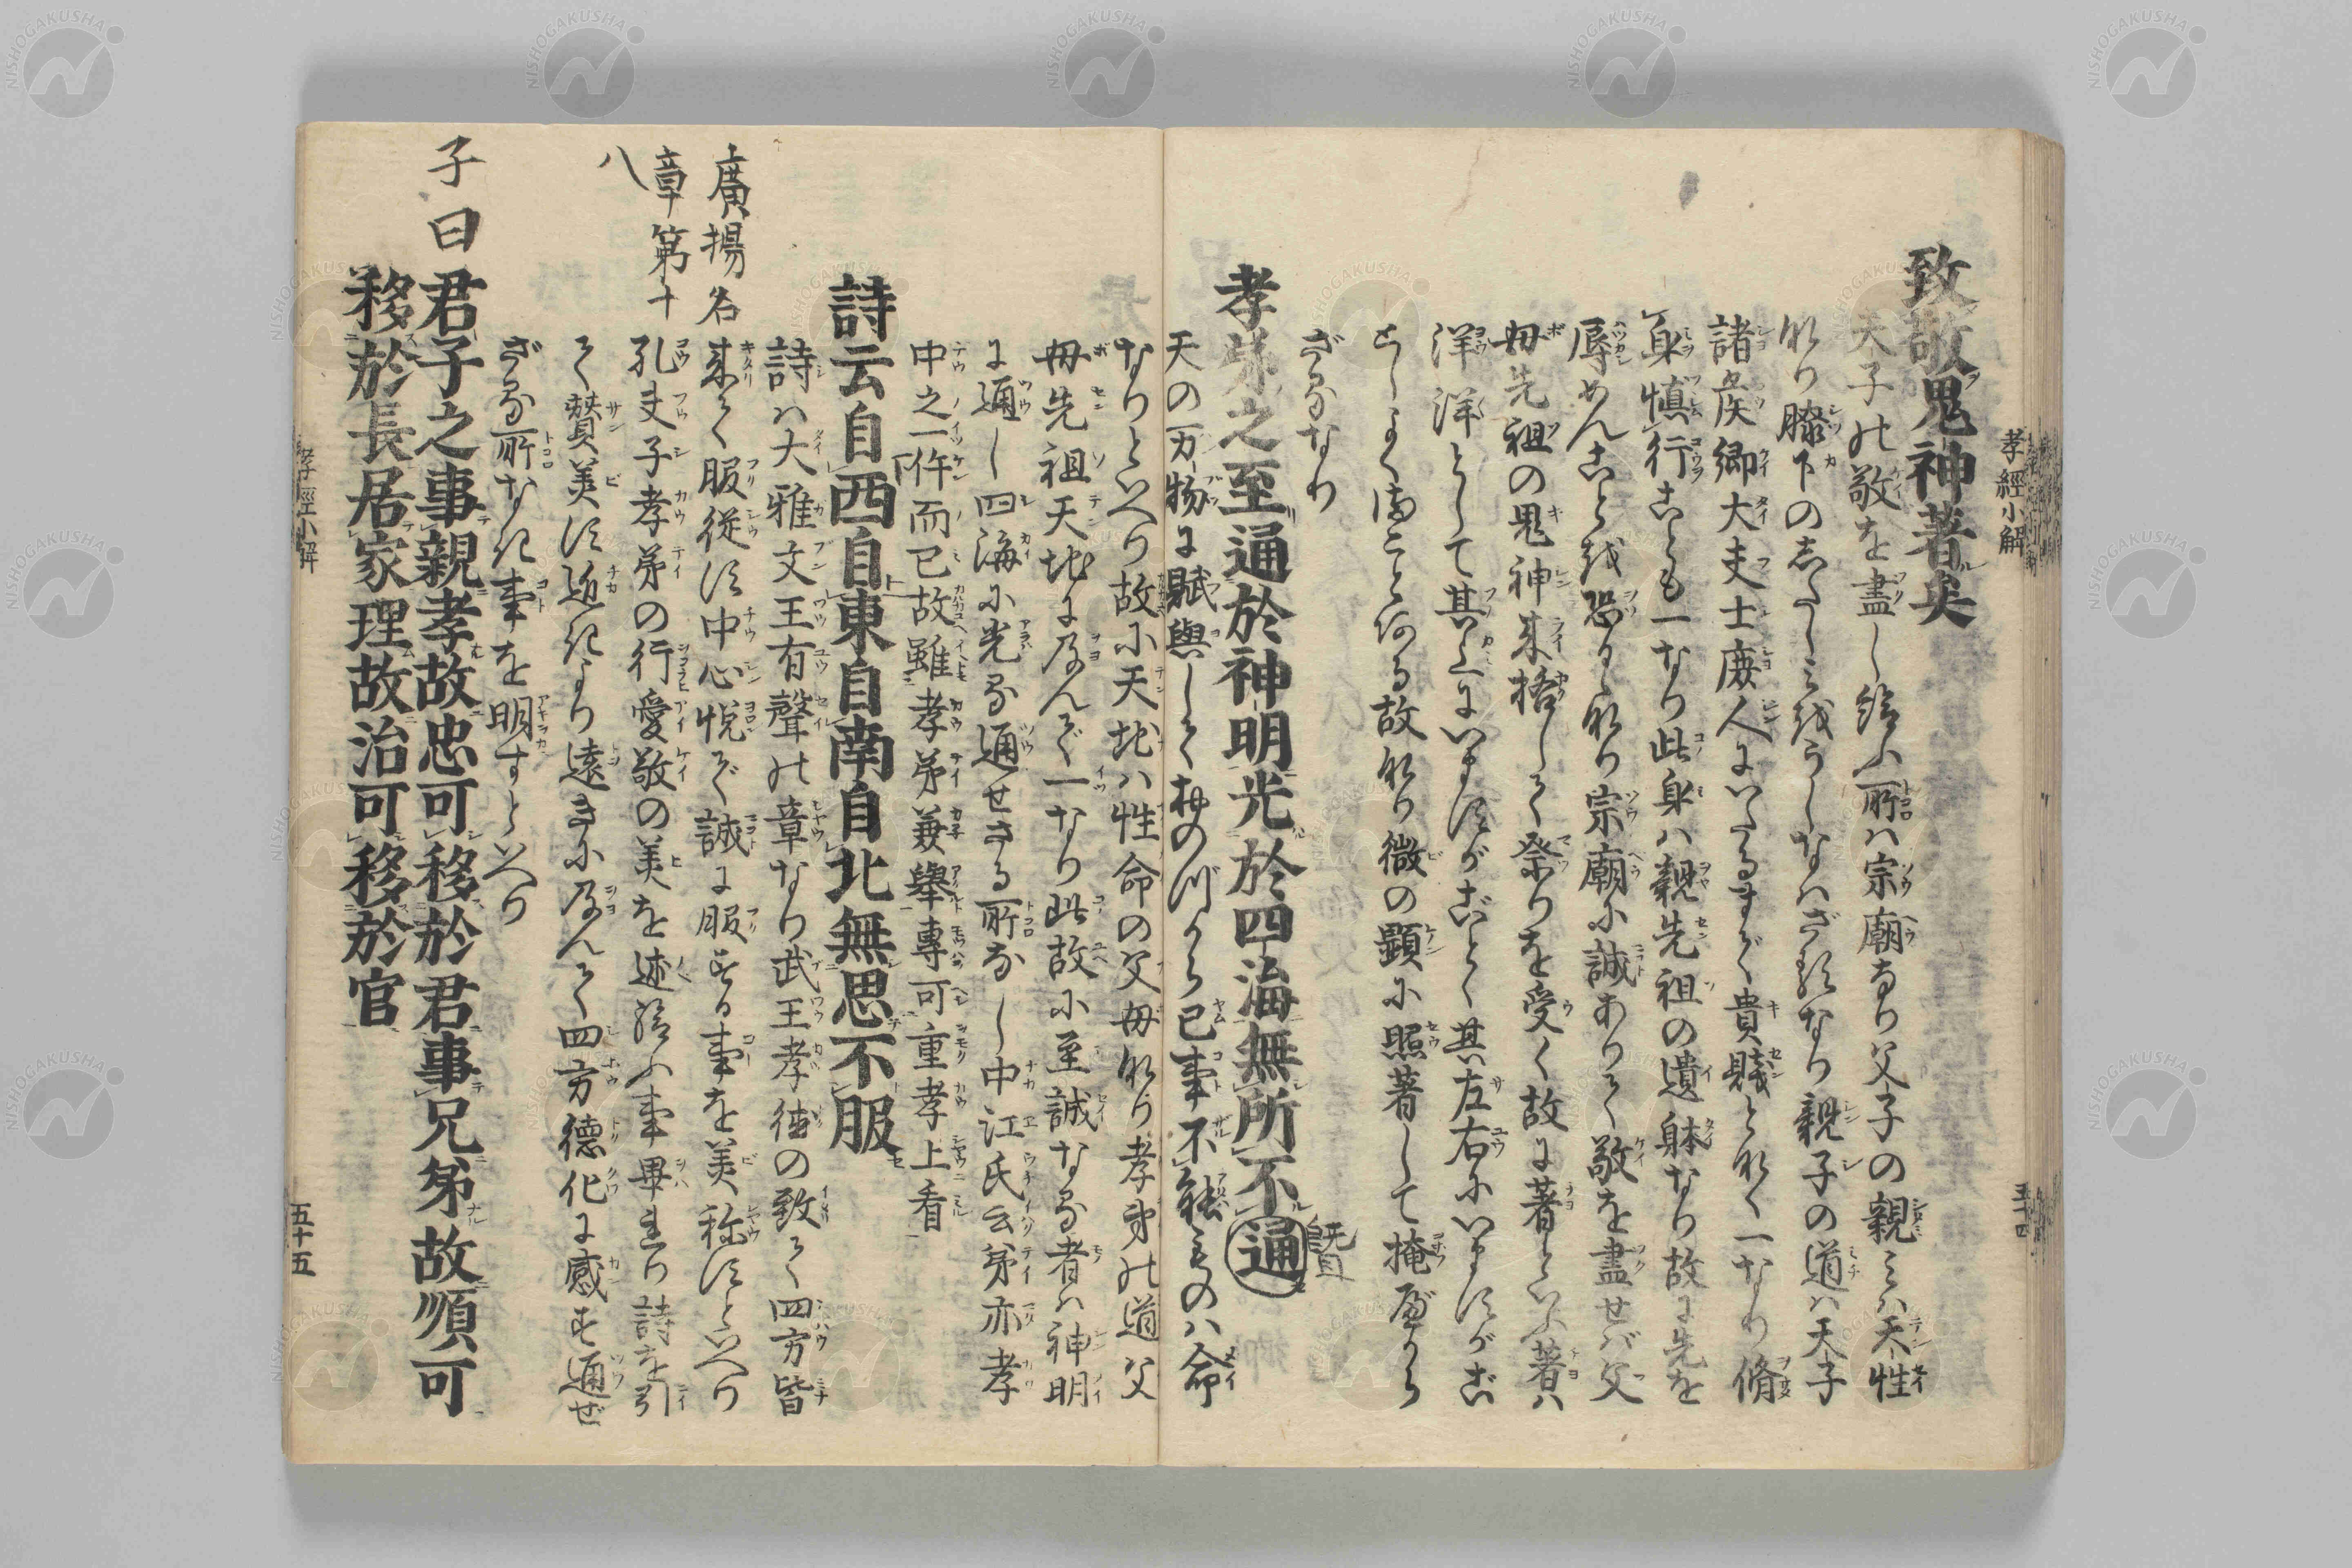 孝經小解
致敬鬼神著矣
天子の敬を盡し給ふ所は宗廟なり父子の親みは天性
なり膝下のしたしみをうしなはざるなり親子の道は天子
諸侯卿大夫士庶人にいたるまで貴賤となく一なり脩
身慎行ことも一なり此身は親先祖の遺躰なり故に先を
辱めんことを恐るなり宗廟に誠ありて敬を盡せば父
母先祖の鬼神来格して祭りを受く故に著といふ著は
洋洋として其上にいますがごとく其左右にいますがご
としよく海こと何る故なり微の顕に照著して掩べから
ざるなり
孝弟之至通於神明光於四海無所不通
暨
天の万物に賦與してをのづから已事不能ものは命
なりといへり故に天地は性命の父母なり孝弟の道父
母先祖天地に及んで一なり此故に至誠なる者は神明
に通し四海に光る通せざる所なし中江氏云弟亦孝
中之一件而已故雖孝弟兼舉專可重孝上看
詩云自西自東自南自北無思不服
詩は大雅文王有聲の章なり武王孝徳の致て四方皆
来て服従す中心悦で誠に服する事を美称すといへり
孔夫子孝弟の行愛敬の美を述給ふ事畢り詩を引
て賛美す近きより遠きに及んで四方徳化に感ず通ぜ
ざる所なき事を明すといへり
廣揚名
章第十
八
子曰君子之事親孝故忠可移於君事兄弟故順可
移於長居家理故治可移於官
孝經小解
五十五